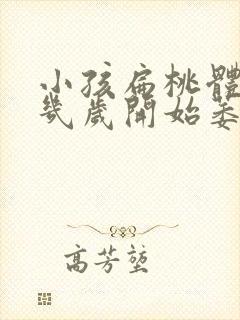 小孩扁桃體
幾歲開始萎
高芳堃